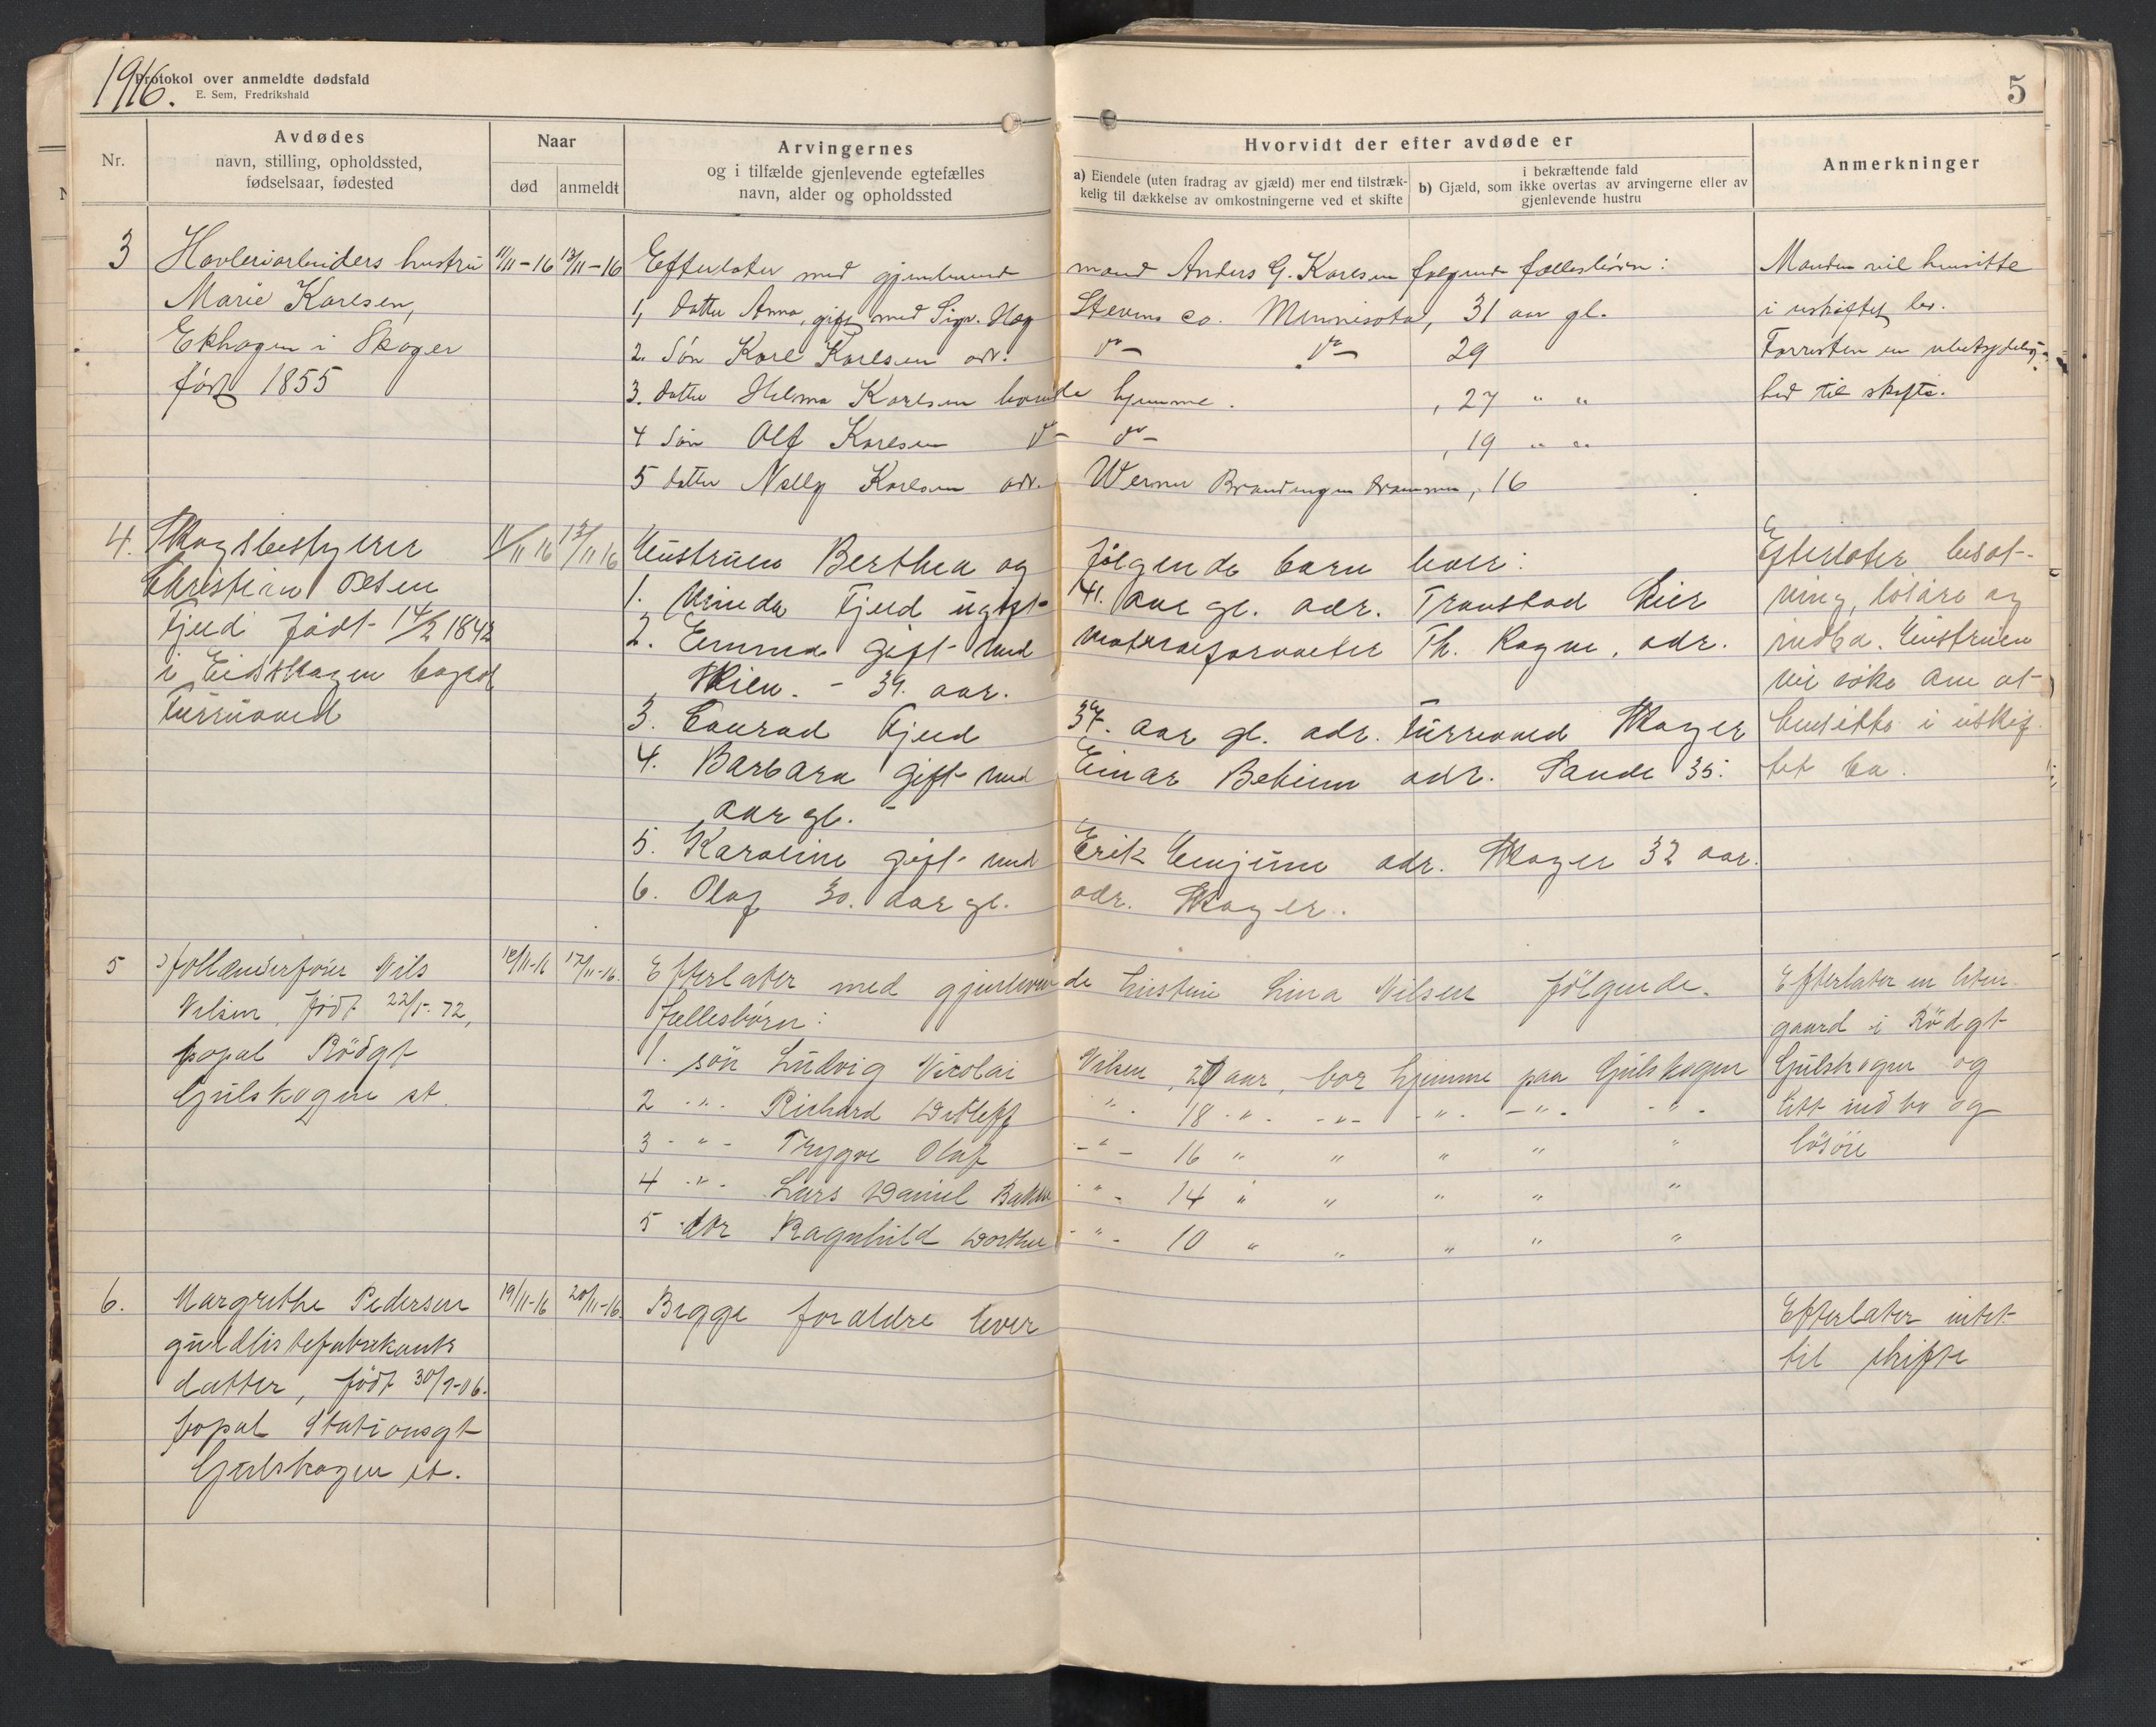 1916.
Protokol over anmeldte dødsfald
E. Sem, Fredrikshald
5
Nr.
Avdødes
navn, stilling, opholdssted,
fødselsaar, fødested
Naar
død
anmeldt
Arvingernes
og i tilfælde gjenlevende egtefælles
navn, alder og opholdssted
Hvorvidt der efter avdøde er
a) Eiendele (uten fradrag av gjæld) mer end tilstræk-
kelig til dækkelse av omkostningerne ved et skifte
i bekræftende fald
b) Gjæld, som ikke overtas av arvingerne eller av
gjenlevende hustru
Anmerkninger
3
Høvleriarbeiders hustru
Marie Karlsen,
Ekhagen i Skoger
født 1855
11/11-16
13/11-16
Efterlater med gjenlevende mand Anders G. Karlsen følgende fællesbörn:
1, datter Anna, gift med Sigv. Hag Stevens co. Minnisota, 31 aar gl.
2. Søn Karl Karlsen adr. do do 29
3. datter Helma Karlsen hjemme. , 27 " "
4 Søn Olf Karlsen do do , 19 " "
5 datter Nelly Karlsen adr. Werner Drammen, 16
Manden vil hensitte
i uskiftet bo.
til skifte.
4.
Skogsbestyrer
Christian Olsen
Fjeld født 14/2 1842
i Eidskogen bopæl
Turrusved
11/11 16
13/11 16
Hustruen Berthea og følgende barn lever:
1. Minda Fjeld ugift 41. aar gl. adr. Transtad Lier
2. Emma gift med Th. Ragne, adr.
39. aar.
3. Conrad Fjeld 37. aar gl. adr. Skoger
4. Barbara gift med Einar adr. Sande 35.
aar gl. -
5. Karoline gift med Erik adr. Skoger 32 aar.
6. Olaf 30. aar gl. adr. Skoger.
Efterlater besæt-
ning, løsøre og
indbo. Hustruen
vil søke om at
hensitte i uskif-
tet bo.
5
Nils
Nilsen, født 22/5-72,
bopæl Rödgt
Gulskogen st.
12/11-16
17/11-16.
Efterlater med gjenlevende hustru Lina Nilsen følgende
fællesbørn:
1. søn Ludvig Nicolai Nilsen, 20 aar, bor hjemme paa Gulskogen
2 -"- Richard Detleff -"- 18 -"- -"- -"- -"- -"-
3 -"- Trygve Olaf -"- 16 " " " " "
4 -"- Lars Daniel -"- 14 " " " " "
5 dtr Ragnhild Dorthea -"- 10 " " " " "
Efterlater en liten
gaard i Rödgt
Gulskogen og
litt indbo og
løsøre
6.
Margrethe Pedersen
guldlistefabrikants
datter, født 30/9-06.
bopæl Stationsgt
Gulskogen st.
19/11-16
20/11-16.
Begge forældre lever
Efterlater intet
til skifte